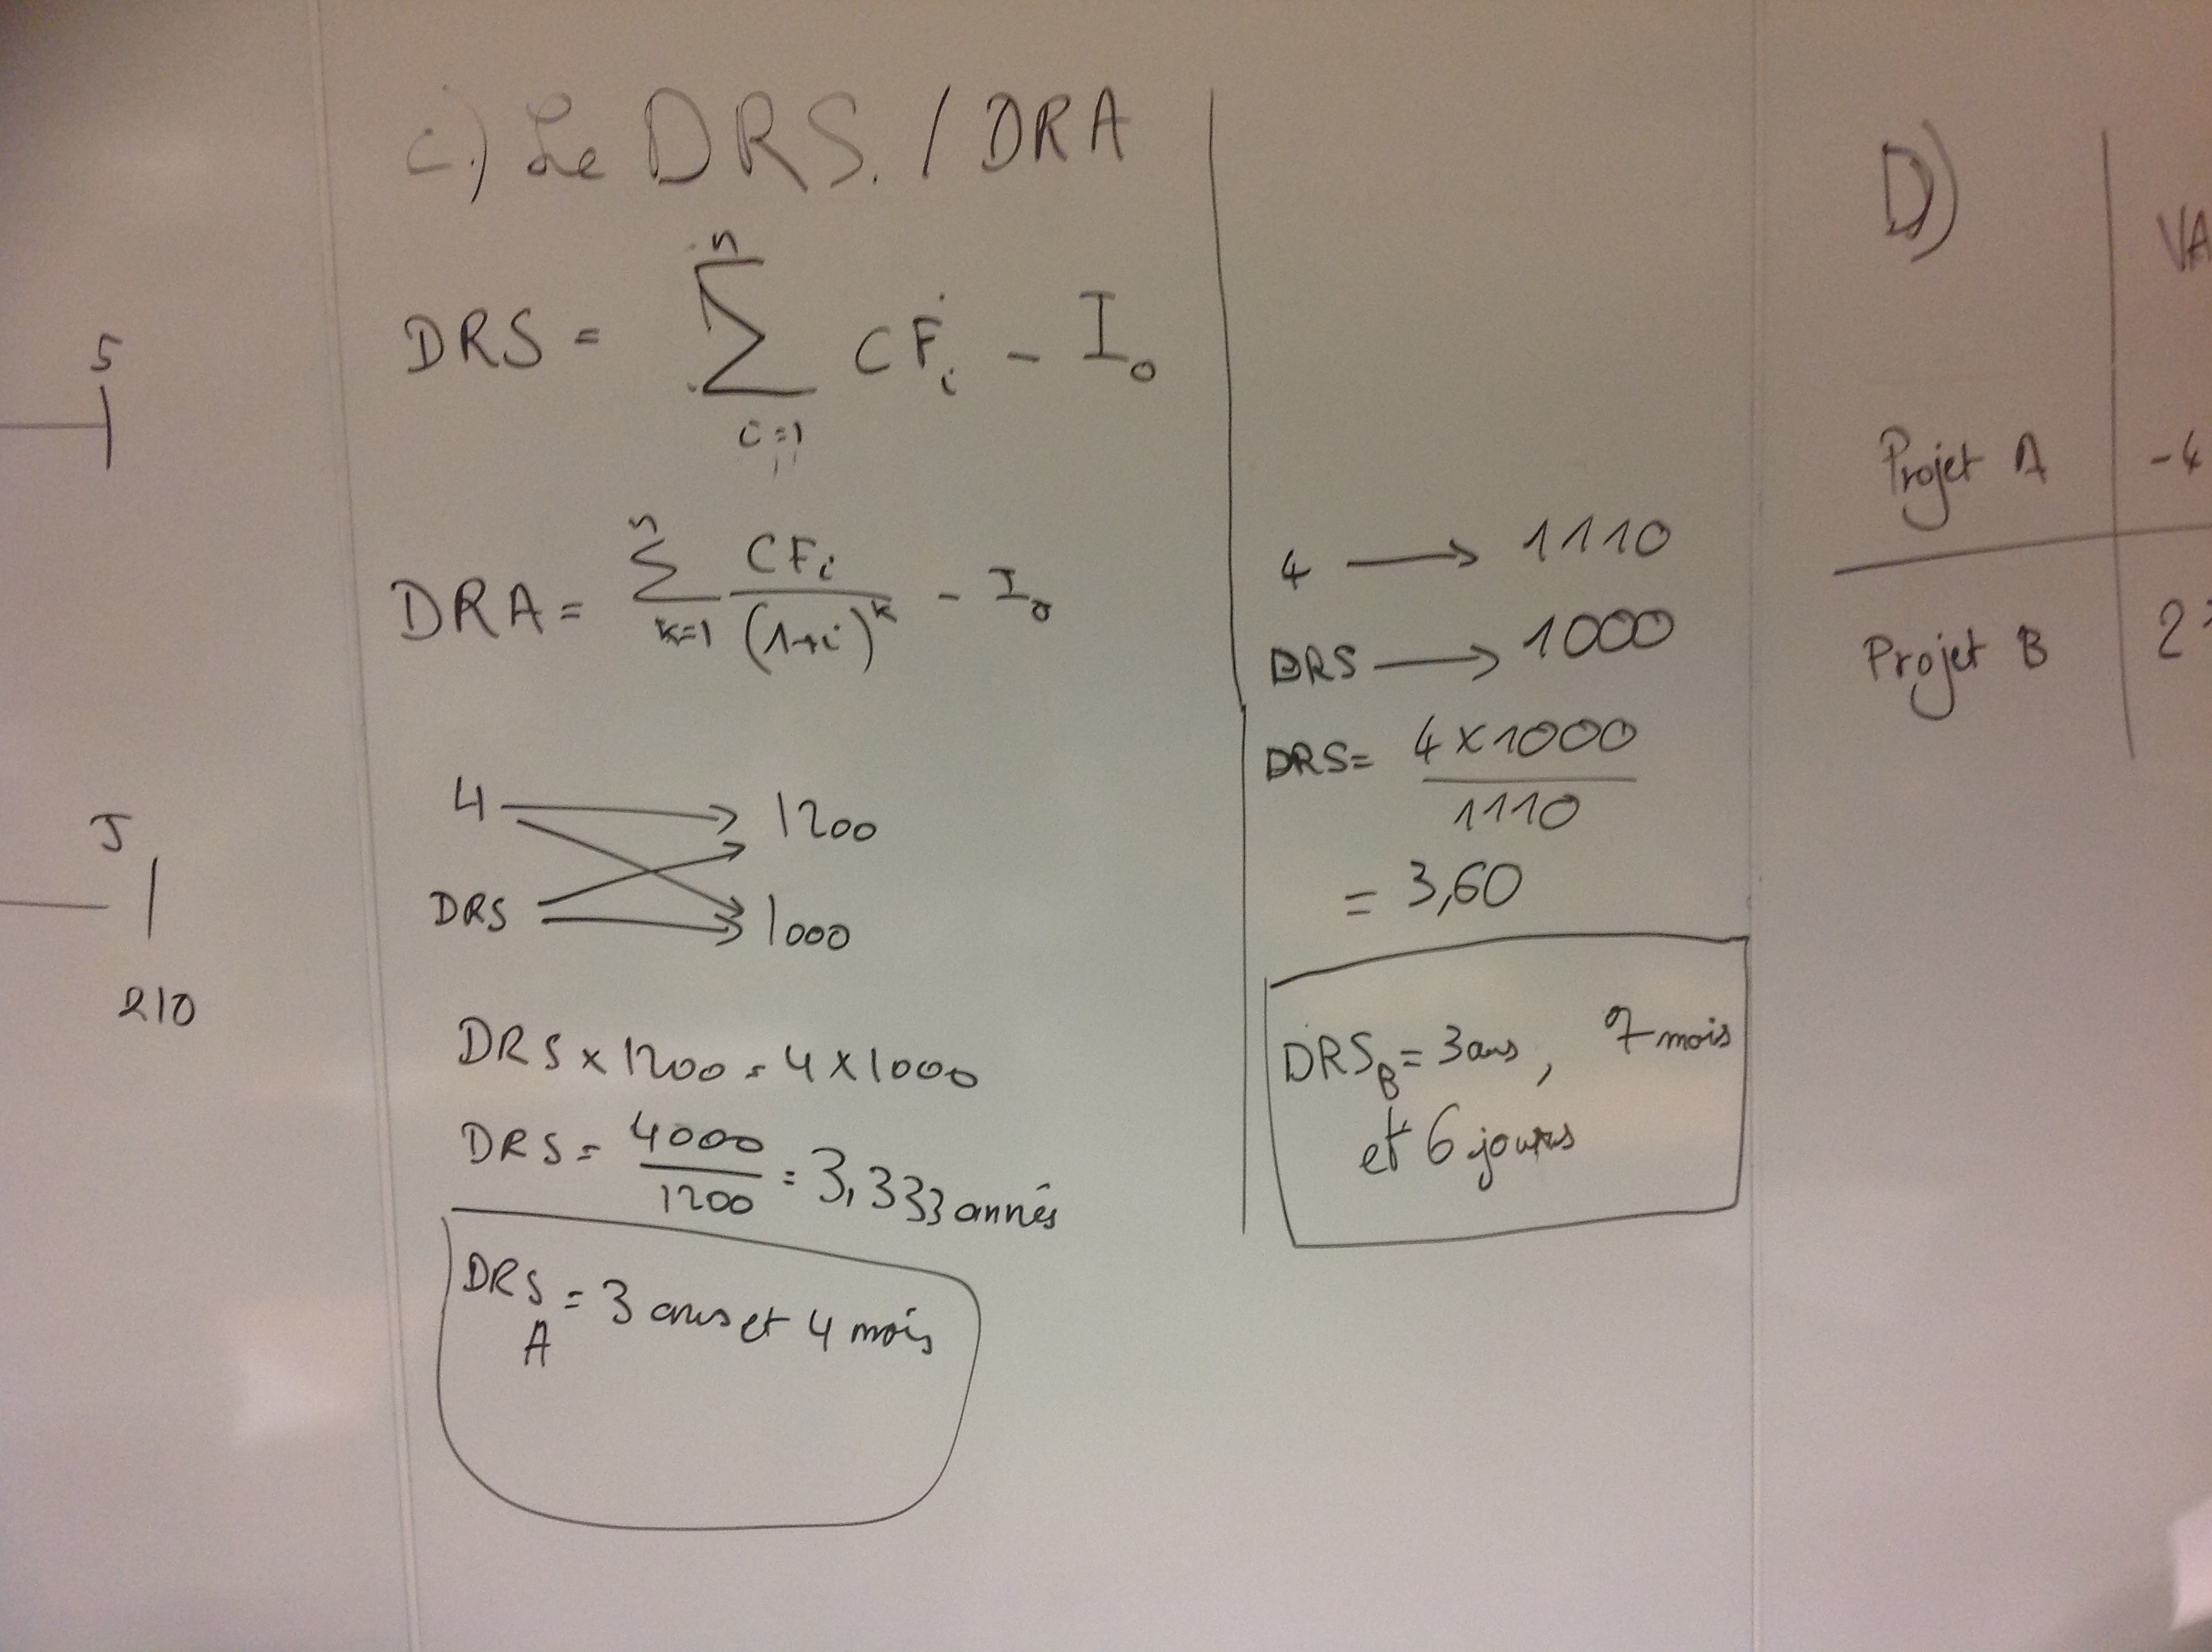 5
J
210
c.) Le DRS. / DRA
DRS = n ∑ i=1 CFi - I0
DRA = n ∑ k=1 CFi / (1+i)^k - I0
4 → 1200
DRS → 1000
DRS x 1200 = 4 x 1000
DRS = 4000 / 1200 = 3,333 annés
DRS A = 3 ans et 4 mois
4 → 1110
DRS → 1000
DRS = 4 x 1000 / 1110
= 3,60
DRS B = 3 ans, 7 mois
et 6 jours
D)
VA
Projet A -4
Projet B 2